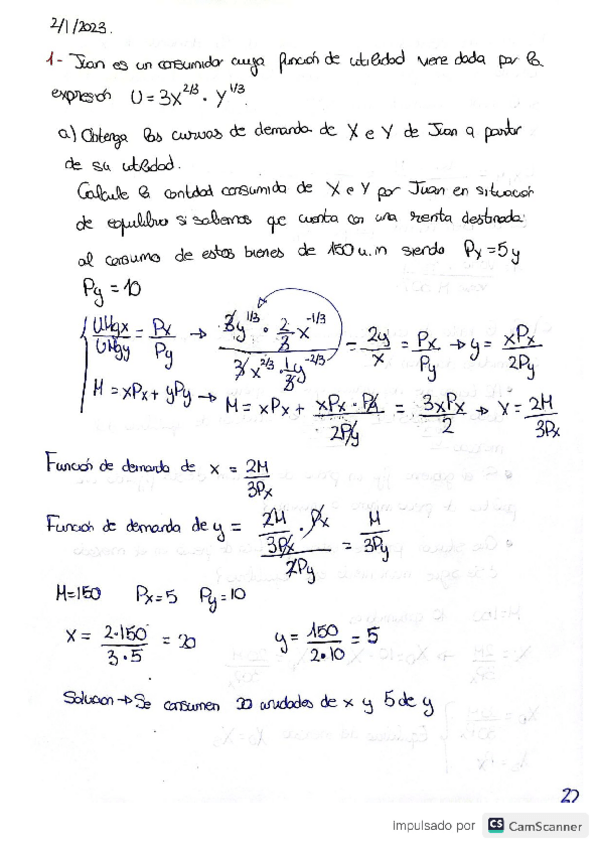 2/1/2023.
1- Juan es un consumidor cuya función de utilidad viene dada por la
expresión U = 3x^2/3 · y^1/3
a) Obtenga las curvas de demanda de X e Y de Juan a partir
de su utilidad.
Calcule la cantidad consumida de X e Y por Juan en situación
de equilibrio si sabemos que cuenta con una renta destinada
al consumo de estos bienes de 150 u.m siendo Px = 5 y
Py = 10
{ UMgx/UMgy = Px/Py → (3y^1/3 · 2/3 x^-1/3)/(3x^2/3 · 1/3 y^-2/3) = 2y/x = Px/Py → y = xPx/2Py
M = xPx + yPy → M = xPx + (xPx · Py)/2Py = 3xPx/2 → x = 2M/3Px
Función de demanda de x = 2M/3Px
Función de demanda de y = (2M/3Px · Px)/2Py = M/3Py
M=150 Px=5 Py=10
x = 2·150/3·5 = 20 y = 150/2·10 = 5
Solucion → Se consumen 20 unidades de x y 5 de y
Impulsado por CS CamScanner